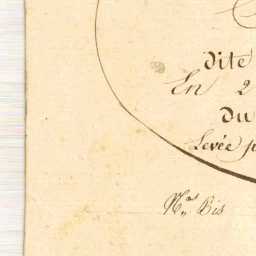 dite
En 2
Du
Levée
Nos Bis